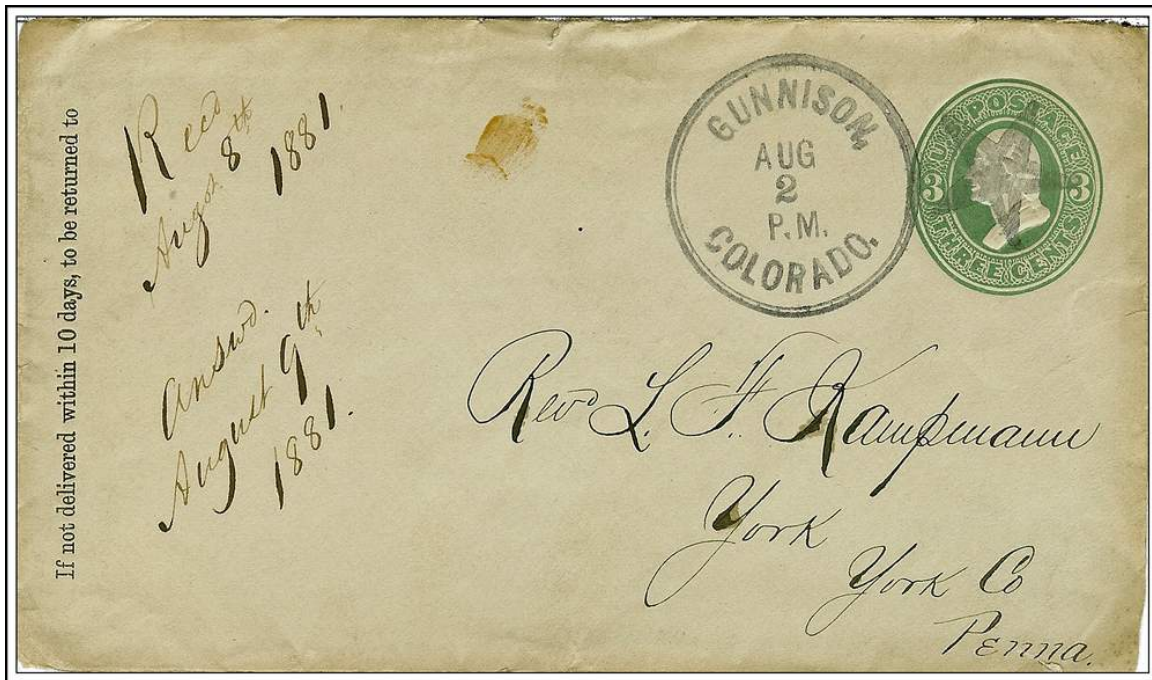 If not delivered within 10 days, to be returned to
Recd
August 8th
1881.
Answd.
August 9th
1881.
GUNNISON,
AUG
2
P.M.
COLORADO.
U.S. POSTAGE
3 3
THREE CENTS
Revd L. F. Kampmann
York
York Co
Penna.